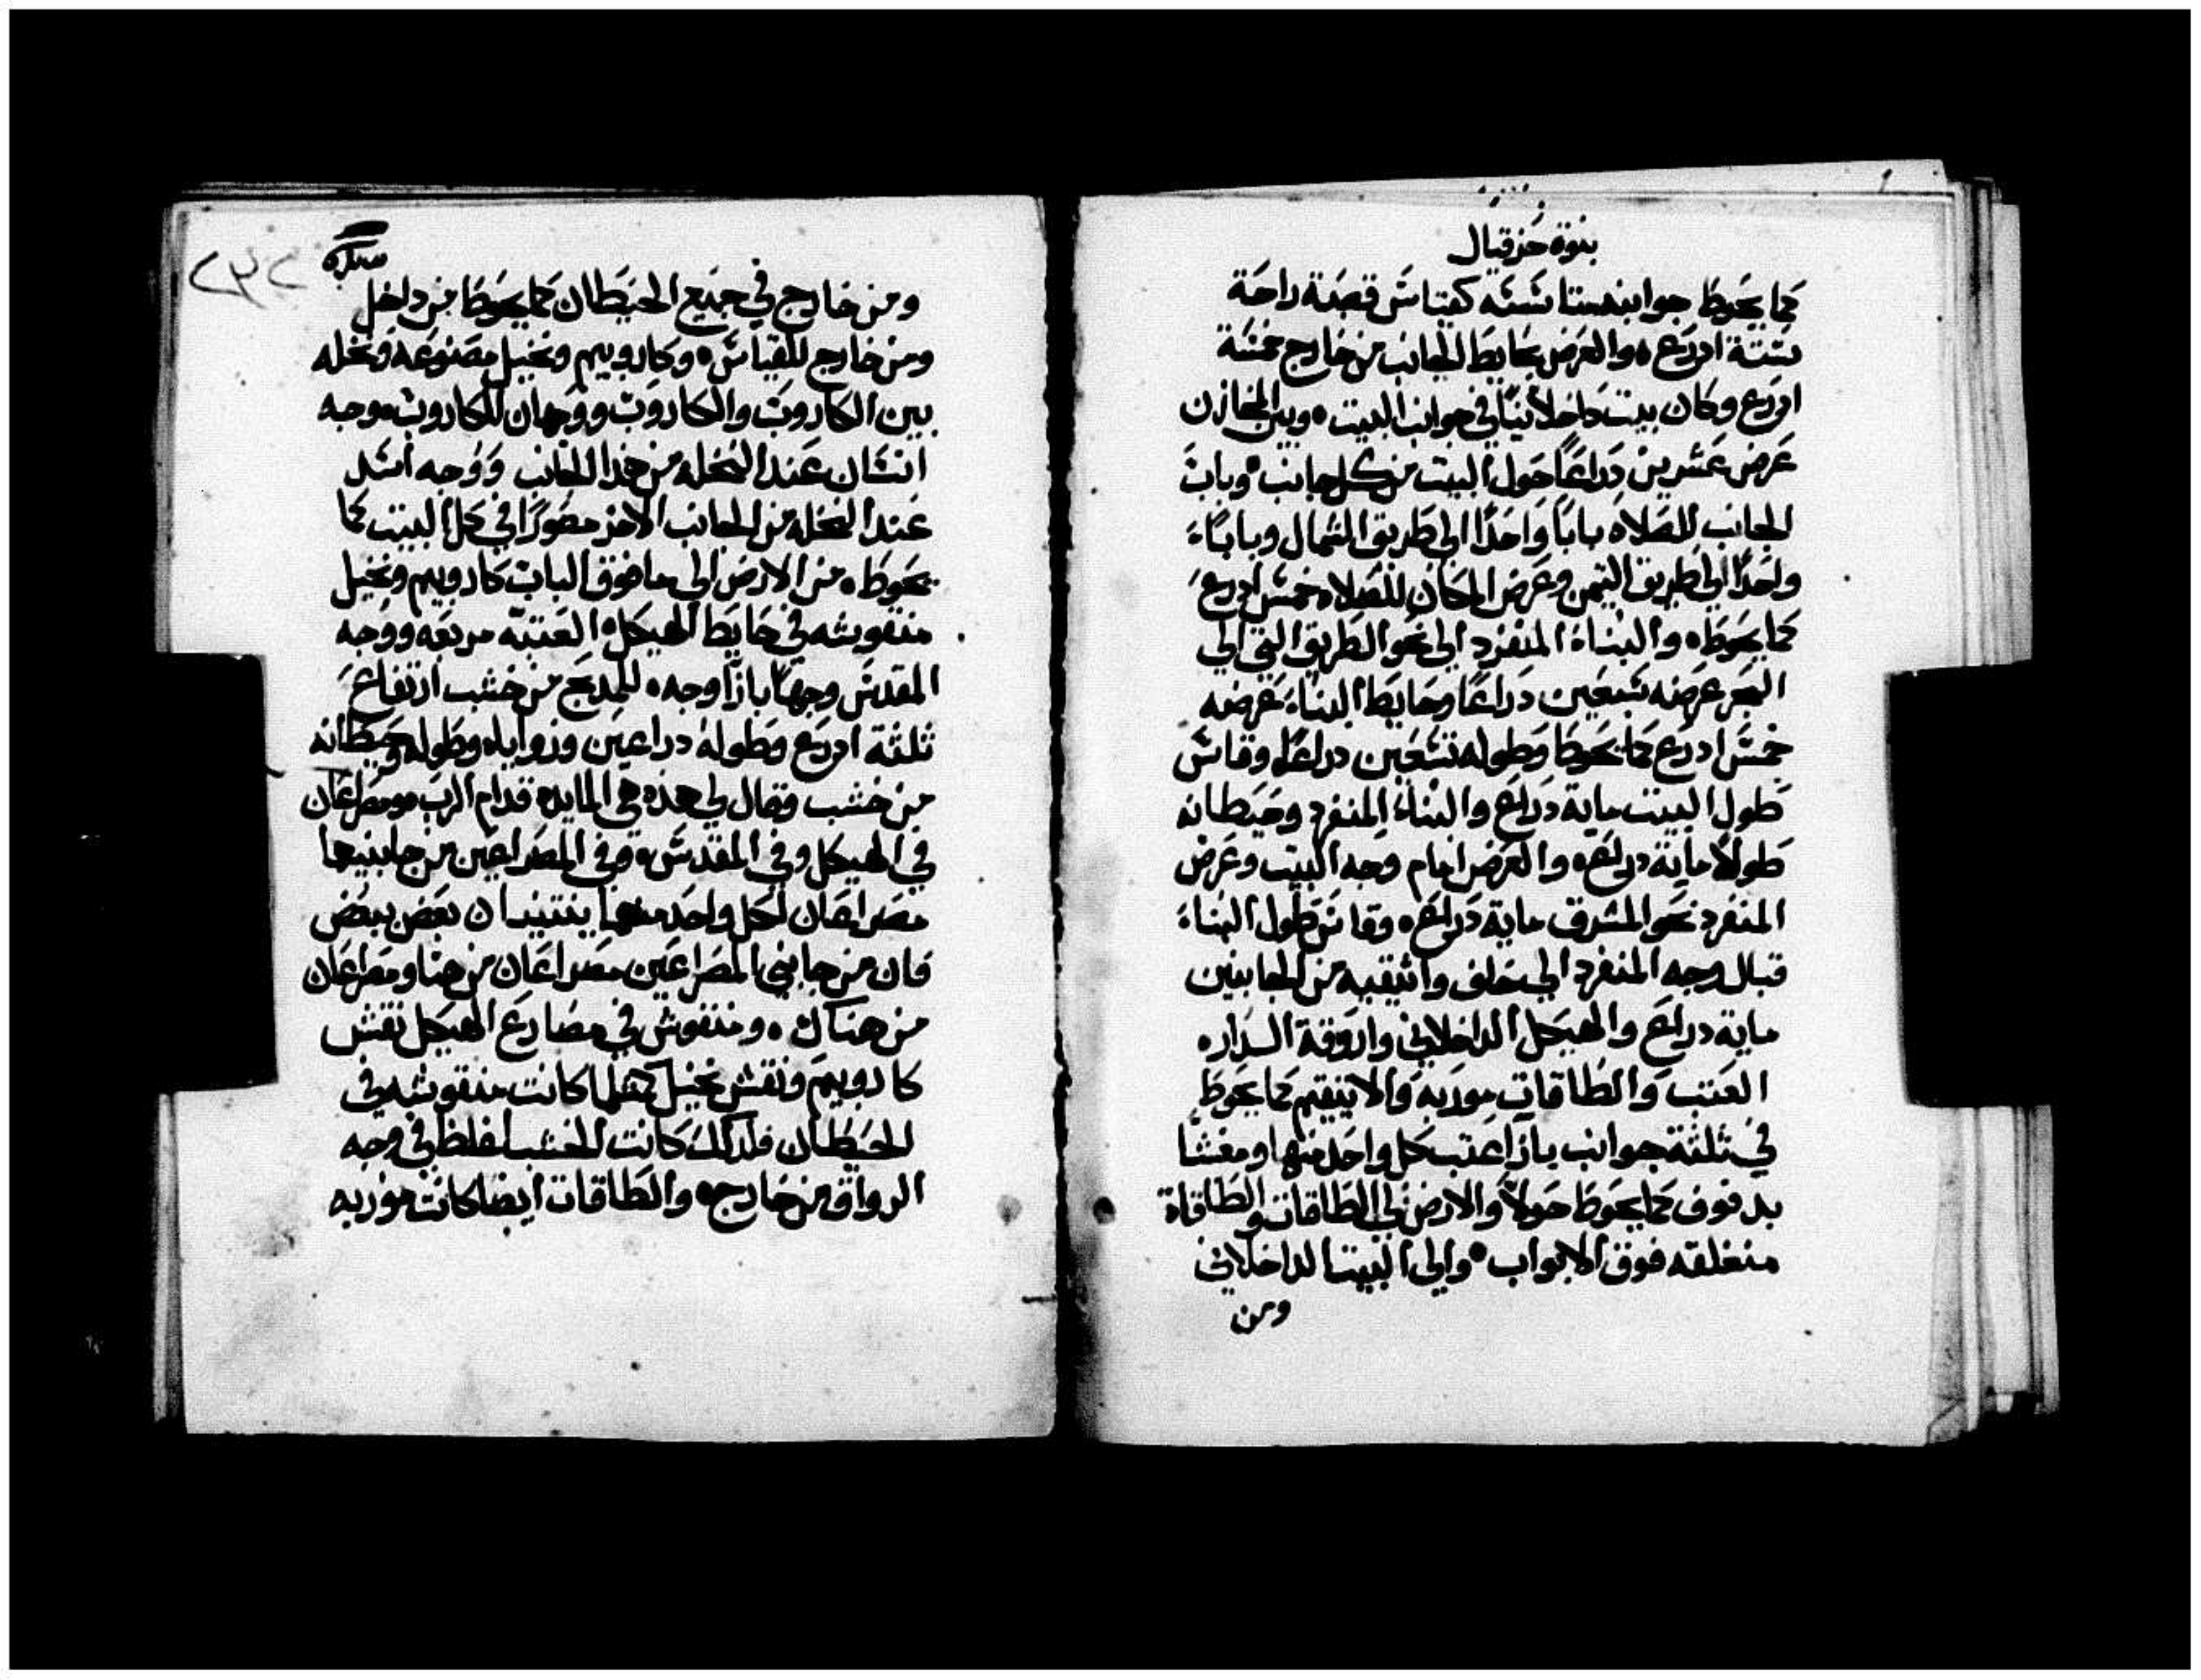 بنوة حزقيال
كما يحوط جوانبه ستا ستة كقياس قصبة راحة
ستة ادرع والعرض بحايط الجانب من خارج خمسة
ادرع وكان بيت داخلانيا في جوانب البيت وبين المخازن
عرض عشرين دراعا حول البيت من كل جانب وباب
الجانب للصلاه بابا واحدا الى طريق الشمال وبابا
واحدا الى طريق التيمن وعرض المكان للصلاه خمس ادرع
كما يحوط والبناء المنفرد الى نحو الطريق التي الى
البحر عرضه سبعين دراعا وحايط البناء عرضه
خمس ادرع كما يحوط وطوله تسعين دراعا وقاس
طول البيت ماية دراع والبناء المنفرد وحيطانه
طولا ماية دراع والعرض امام وجه البيت وعرض
المنفرد نحو المشرق ماية دراع وقاس طول البناء
قبال وجه المنفرد الى خلف واثيقيه من الجانبين
ماية دراع والهيكل الداخلاني واروقة الداره
العتب والطاقات موربه والاثيقيم كما يحوط
في ثلثة جوانب بازا عتب كل واحد منها ومغشا
بدفوف كما يحوط حولا والارض الى الطاقات والطاقاة
منغلقه فوق الابواب والى البيت الداخلاني
ومن
٢٣٢
ومن خارج في جميع الحيطان كما يحوط من داخل
ومن خارج للقياس وكاروبيم ونخيل مصنوعه ونخله
بين الكاروب والكاروب ووجهان للكاروب وجه
انسان عند النخله من هذا الجانب ووجه اسد
عند النخله من الجانب الاخر مصورا في كل البيت كما
يحوط من الارض الى ما فوق الباب كاروبيم ونخيل
منقوشه في حايط الهيكل العتبه مربعه ووجه
المقدس وجها بازا وجه للمدبح من خشب ارتفاع
ثلثة ادرع وطوله دراعين وزواياه وطوله وحيطانه
من خشب وقال لي هذه هي المايده قدام الرب ومصراعان
في الهيكل وفي المقدس وفي المصراعين من جانبيها
مصراعان لكل واحد منهما ينتنيان بعض ببعض
فان من جانبي المصراعين مصراعان من هنا ومصراعان
من هناك ومنقوش في مصارع الهيكل نقش
كاروبيم ونقش نخيل كمثلما كانت منقوشه في
الحيطان فلدلك كانت الخشب اغلظ في وجه
الرواق من خارج والطاقات ايضا كانت موربه